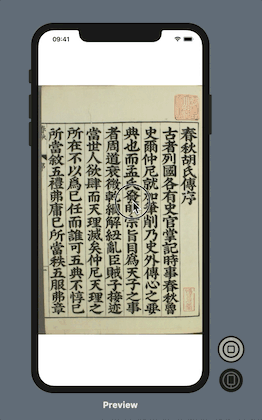 09:41
春秋胡氏傳序
古者列國各有史官掌記時事春秋魯
史爾仲尼就加筆削乃史外傳心之要
典也而孟氏發明宗旨目為天子之事
者周道衰微乾綱解紐亂臣賊子接迹
當世人欲肆而天理滅矣仲尼天理之
所在不以為己任而誰可五典不惇己
所當敘五禮弗庸己所當秩五服弗章
Preview